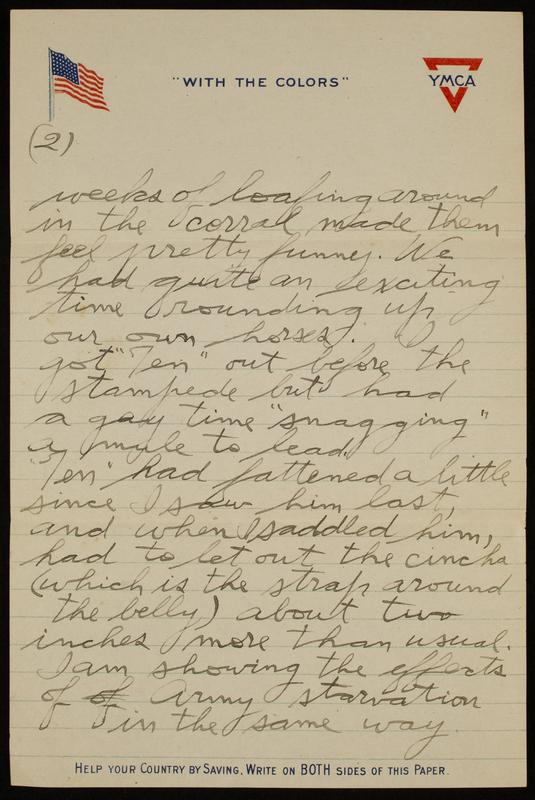 "WITH THE COLORS"
YMCA
(2)
weeks of loafing around
in the corral made them
feel pretty funny. We
had quite an exciting
time rounding up
our own horses. I
got "Ten" out before the
stampede but had
a gay time "snagging"
a mule to lead.
"Ten" had fattened a little
since I saw him last,
and when I saddled him,
had to let out the cincha
(which is the strap around
the belly) about two
inches more than usual.
I am showing the effects
of of Army starvation
in the same way.
HELP YOUR COUNTRY BY SAVING. WRITE ON BOTH SIDES OF THIS PAPER.